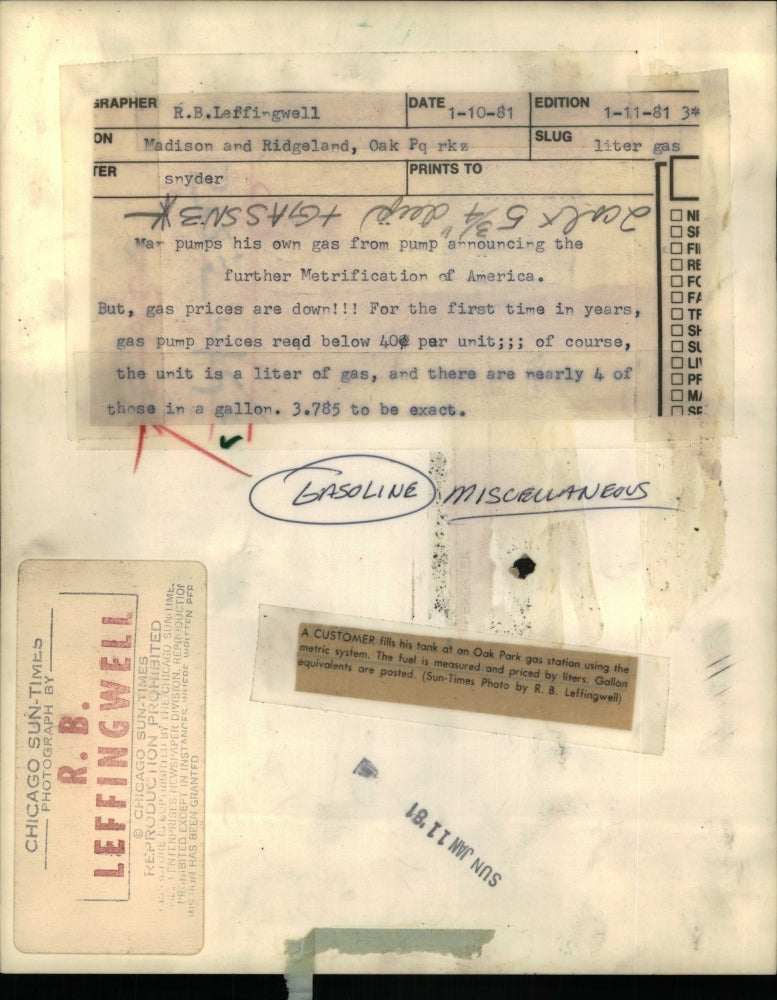 GRAPHER R.B.Leffingwell DATE 1-10-81 EDITION 1-11-81 3*
ON Madison and Ridgeland, Oak Pq rkz SLUG liter gas
TER snyder PRINTS TO
2 col x 5 3/4" deep +GASSN3
Man pumps his own gas from pump announcing the
further Metrification of America.
But, gas prices are down!!! For the first time in years,
gas pump prices read below 40¢ per unit;;; of course,
the unit is a liter of gas, and there are nearly 4 of
those in a gallon. 3.785 to be exact.
NE
SP
FI
RE
FO
FA
TR
SH
SU
LI
PR
MA
SP
GASOLINE MISCELLANEOUS
CHICAGO SUN-TIMES
PHOTOGRAPH BY
R. B.
LEFFINGWELL
© CHICAGO SUN-TIMES
REPRODUCTION PROHIBITED
IS COPYRIGHTED BY THE CHICAGO SUN-TIME
ENTERPRISES NEWSPAPER DIVISION. REPRODUCTION
PROHIBITED EXCEPT IN INSTANCES WHERE WRITTEN PER
MISSION HAS BEEN GRANTED
A CUSTOMER fills his tank at an Oak Park gas station using the
metric system. The fuel is measured and priced by liters. Gallon
equivalents are posted. (Sun-Times Photo by R. B. Leffingwell)
SUN JAN 11 '81